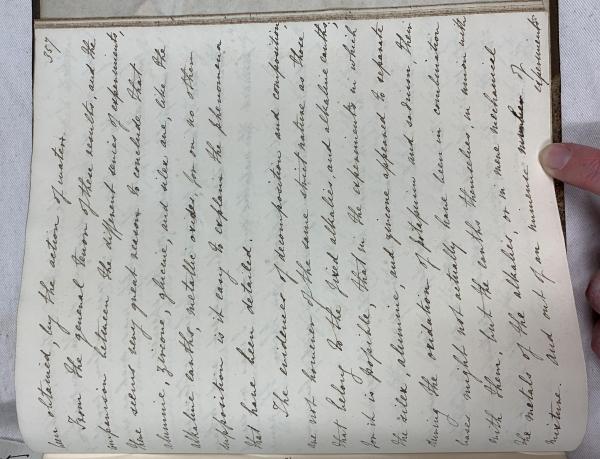 557
been obtained by the action of water.
From the general tenor of these results, and the
comparison between the different series of experiments,
there seems very great reason to conclude that
alumine, zircone, glucine, and silex are, like the
alkaline earths, metallic oxides, for on no other
supposition is it easy to explain the phenomena
that have been detailed.
The evidences of decomposition and composition,
are not however of the same strict nature as those
that belong to the fixed alkalies and alkaline earths,
for it is possible, that in the experiments in which
the silex, alumine, and zircone appeared to separate
during the oxidation of potassium and sodium, their
bases might not actually have been in combination
with them, but the earths themselves, in union with
the metals of the alkalies, or in mere mechanical
mixture. And out of an immense number of
experiments